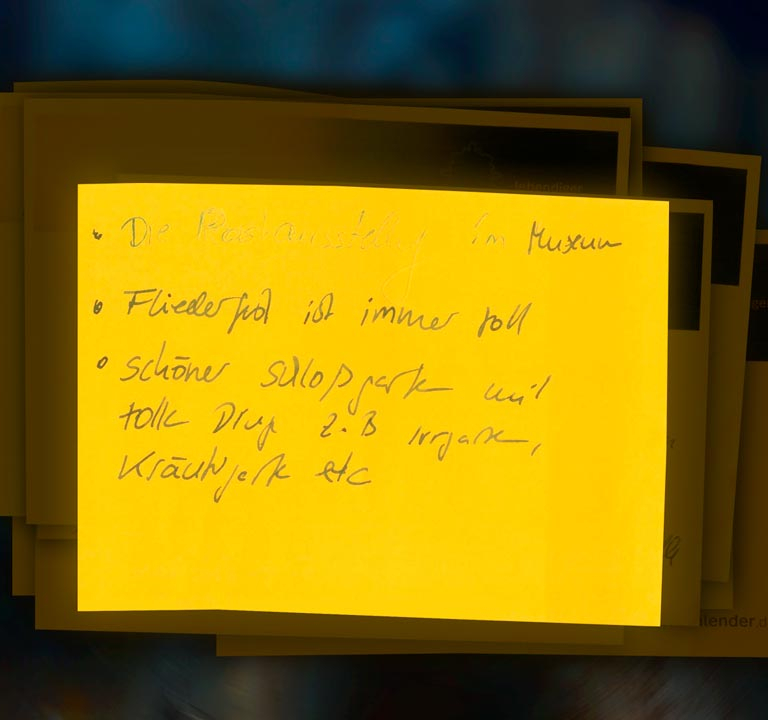 • Die Postausstellung im Museum
• Fliederfest ist immer toll
• schöner Schloßgarten mit
tolle Dinge z.B Irrgarten,
Kräutergarten etc
lebendiger
alender.d